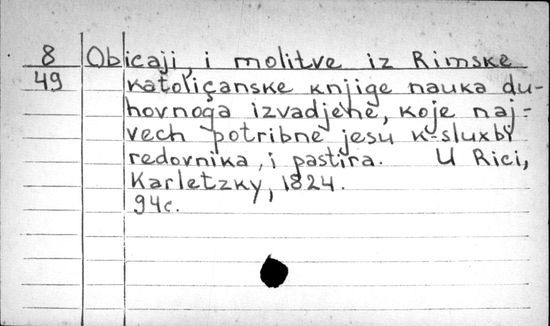 8 Obicaji, i molitve iz Rimske
49 katoliçanske knjige nauka du-
hovnoga izvadjene, koje naj-
vech potribne jesu k-sluxbi
redovnika, i pastira. U Rici,
Karletzky, 1824.
94c.